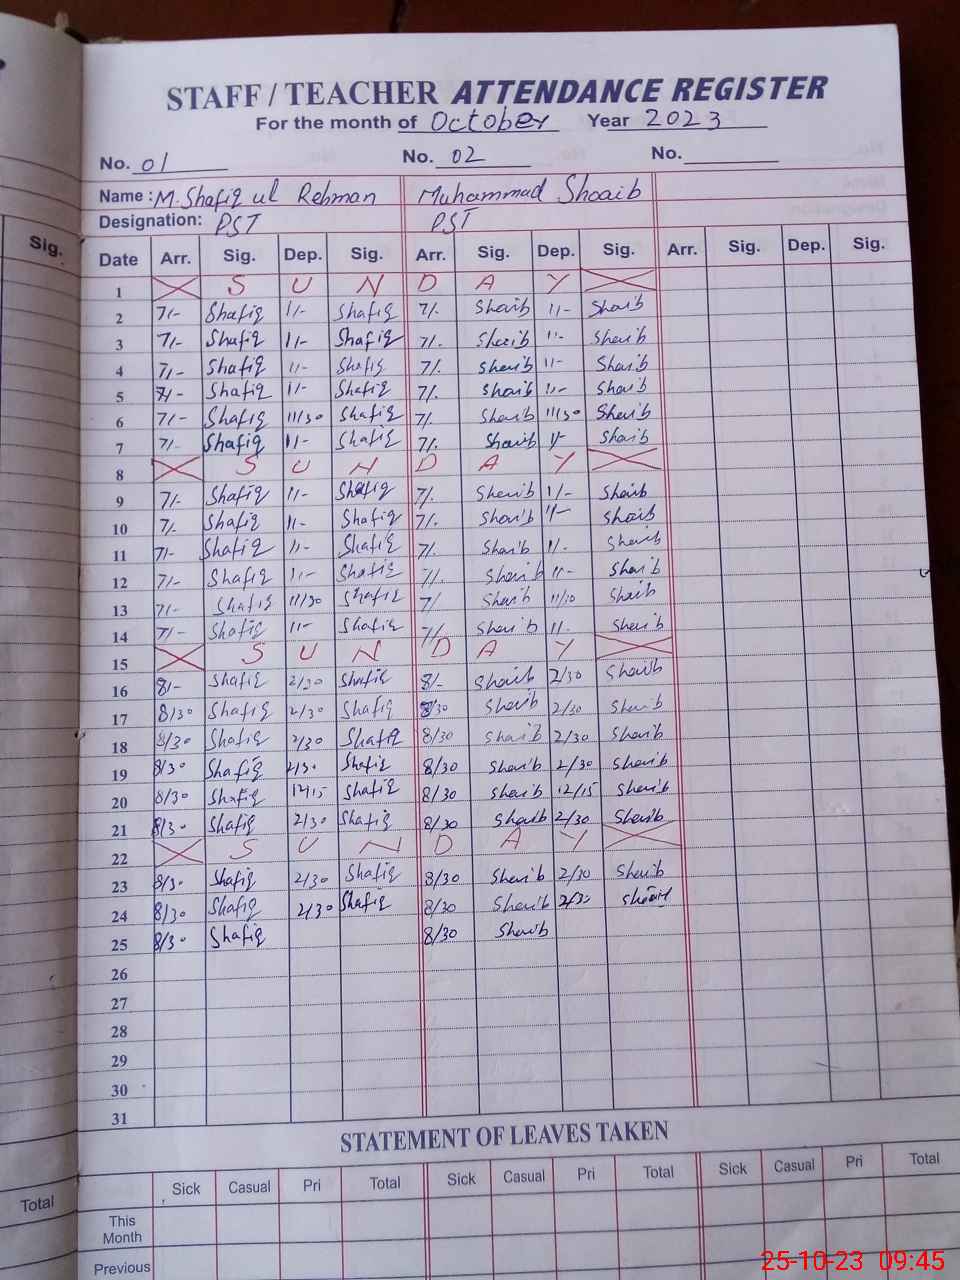 STAFF / TEACHER ATTENDANCE REGISTER
For the month of October Year 2023
No. 01 No. 02 No.
Name : M. Shafiq ul Rehman Muhammad Shoaib
Designation: PST PST
Sig. Date Arr. Sig. Dep. Sig. Arr. Sig. Dep. Sig. Arr. Sig. Dep. Sig.
1 S U N D A Y
2 7/- Shafiq 11/- Shafiq 7/. Shoaib 11/- Shoaib
3 7/- Shafiq 11/- Shafiq 7/. Shoaib 11/- Shoaib
4 7/- Shafiq 11/- Shafiq 7/. Shoaib 11/- Shoaib
5 7/- Shafiq 11/- Shafiq 7/. Shoaib 11/- Shoaib
6 7/- Shafiq 11/30 Shafiq 7/. Shoaib 11/30 Shoaib
7 7/- Shafiq 11/- Shafiq 7/. Shoaib 11/- Shoaib
8 S U N D A Y
9 7/- Shafiq 11/- Shafiq 7/. Shoaib 11/- Shoaib
10 7/- Shafiq 11/- Shafiq 7/. Shoaib 11/- Shoaib
11 7/- Shafiq 11/- Shafiq 7/. Shoaib 11/- Shoaib
12 7/- Shafiq 11/- Shafiq 7/. Shoaib 11/- Shoaib
13 7/- Shafiq 11/30 Shafiq 7/ Shoaib Shoaib
14 7/- Shafiq 11/- Shafiq 7/- Shoaib 11/. Shoaib
15 S U N D A Y
16 8/- Shafiq 2/30 Shafiq 8/- Shoaib 2/30 Shoaib
17 8/30 Shafiq 2/30 Shafiq 8/30 Shoaib 2/30 Shoaib
18 8/30 Shafiq 2/30 Shafiq 8/30 Shoaib 2/30 Shoaib
19 8/30 Shafiq 2/30 Shafiq 8/30 Shoaib 2/30 Shoaib
20 8/30 Shafiq 12/15 Shafiq 8/30 Shoaib 12/15 Shoaib
21 8/30 Shafiq 2/30 Shafiq 8/30 Shoaib 2/30 Shoaib
22 S U N D A Y
23 8/30 Shafiq 2/30 Shafiq 8/30 Shoaib 2/30 Shoaib
24 8/30 Shafiq 2/30 Shafiq 8/30 Shoaib 2/30 Shoaib
25 8/30 Shafiq 8/30 Shoaib
26
27
28
29
30
31
STATEMENT OF LEAVES TAKEN
Total Sick Casual Pri Total Sick Casual Pri Total Sick Casual Pri Total
This Month
Previous
25-10-23 09:45